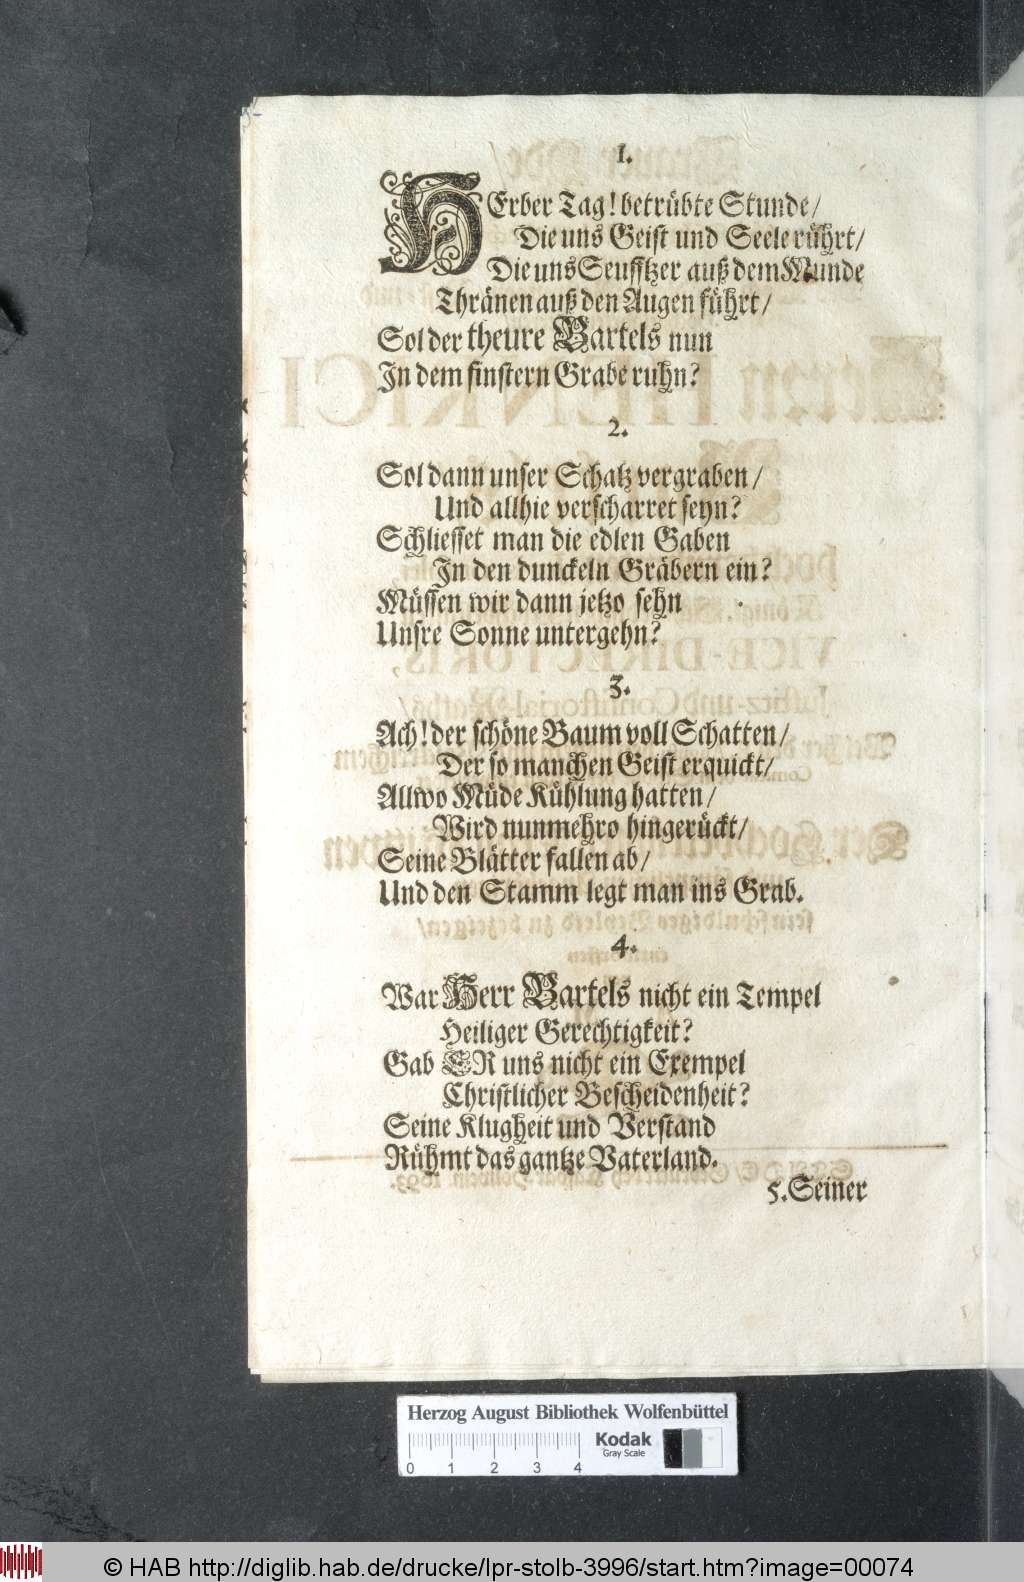 1.
HErber Tag! betrübte Stunde/
Die uns Geist und Seele rührt/
Die uns Seufftzer auß dem Munde
Thränen auß den Augen führt/
Sol der theure Bartels nun
In dem finstern Grabe ruhn?
2.
Sol dann unser Schatz vergraben/
Und allhie verscharret seyn?
Schliesset man die edlen Gaben
In den dunckeln Gräbern ein?
Müssen wir dann jetzo sehn
Unsre Sonne untergehn?
3.
Ach! der schöne Baum voll Schatten/
Der so manchen Geist erquickt/
Allwo Müde Kühlung hatten/
Wird nunmehro hingerückt/
Seine Blätter fallen ab/
Und den Stamm legt man ins Grab.
4.
War Herr Bartels nicht ein Tempel
Heiliger Gerechtigkeit?
Gab ER uns nicht ein Exempel
Christlicher Bescheidenheit?
Seine Klugheit und Verstand
Rühmt das gantze Vaterland.
5. Seiner
Herzog August Bibliothek Wolfenbüttel
Kodak
Gray Scale
0 1 2 3 4
© HAB http://diglib.hab.de/drucke/lpr-stolb-3996/start.htm?image=00074